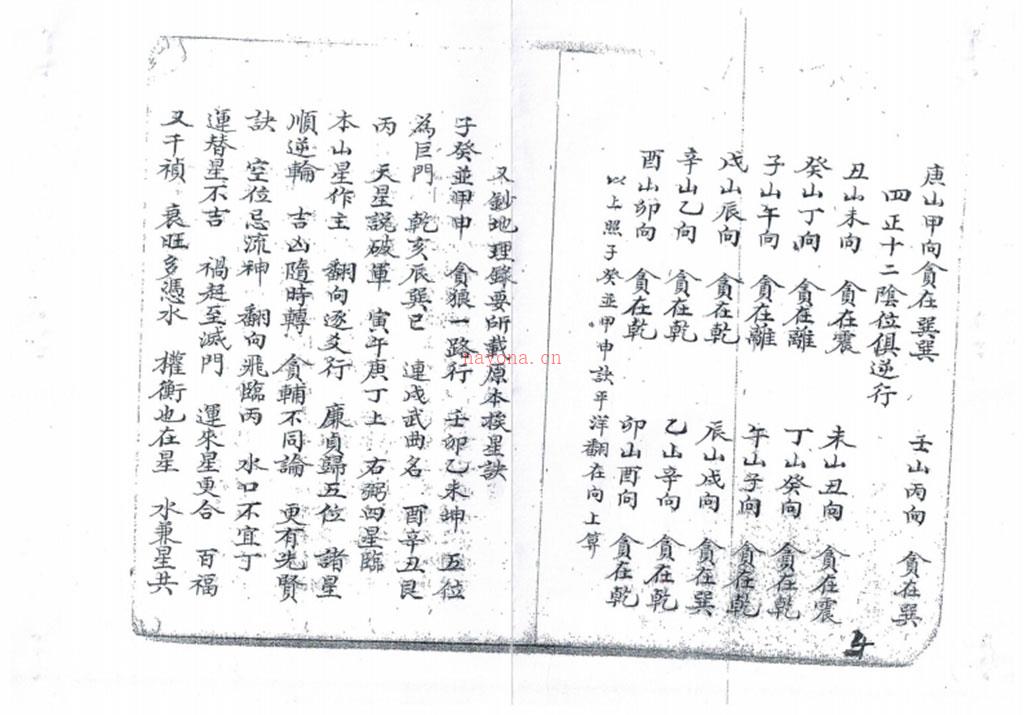 庚山甲向貪在巽巽　壬山丙向　貪在巽
四正十二陰位俱逆行
丑山未向　貪在震　未山丑向　貪在震
癸山丁向　貪在離　丁山癸向　貪在乾
子山午向　貪在離　午山子向　貪在乾
戌山辰向　貪在乾　辰山戌向　貪在巽
辛山乙向　貪在乾　乙山辛向　貪在乾
酉山卯向　貪在乾　卯山酉向　貪在乾
以上照子癸並甲申訣平洋翻在向上算
又鈔地理錄要所載原本挨星訣
子癸並甲申　貪狼一路行　壬卯乙未坤　五位
為巨門　乾亥辰巽巳　連戌武曲名　酉辛丑艮
丙　天星說破軍　寅午庚丁上　右弼四星臨
本山星作主　翻向逐爻行　廉貞歸五位　諸星
順逆輪　吉凶隨時轉　貪輔不同論　更有先賢
訣　空位忌流神　翻向飛臨丙　水口不宜丁
運替星不吉　禍起至滅門　運來星更合　百福
又千禎　衰旺多憑水　權衡也在星　水兼星共
nayona.cn